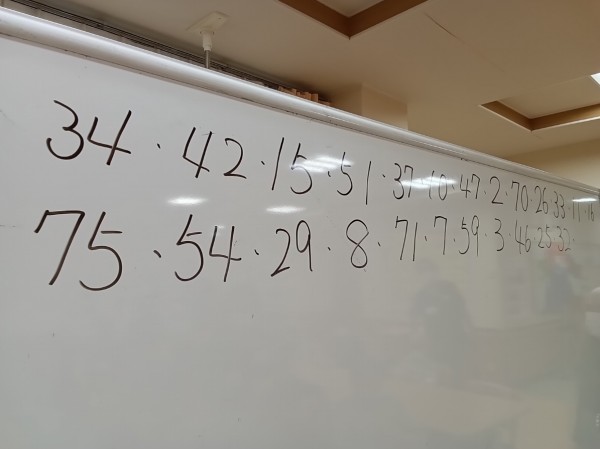 34・42・15・51・37・10・47・2・70・26・33・11・16
75・54・29・8・71・7・59・3・46・25・32・